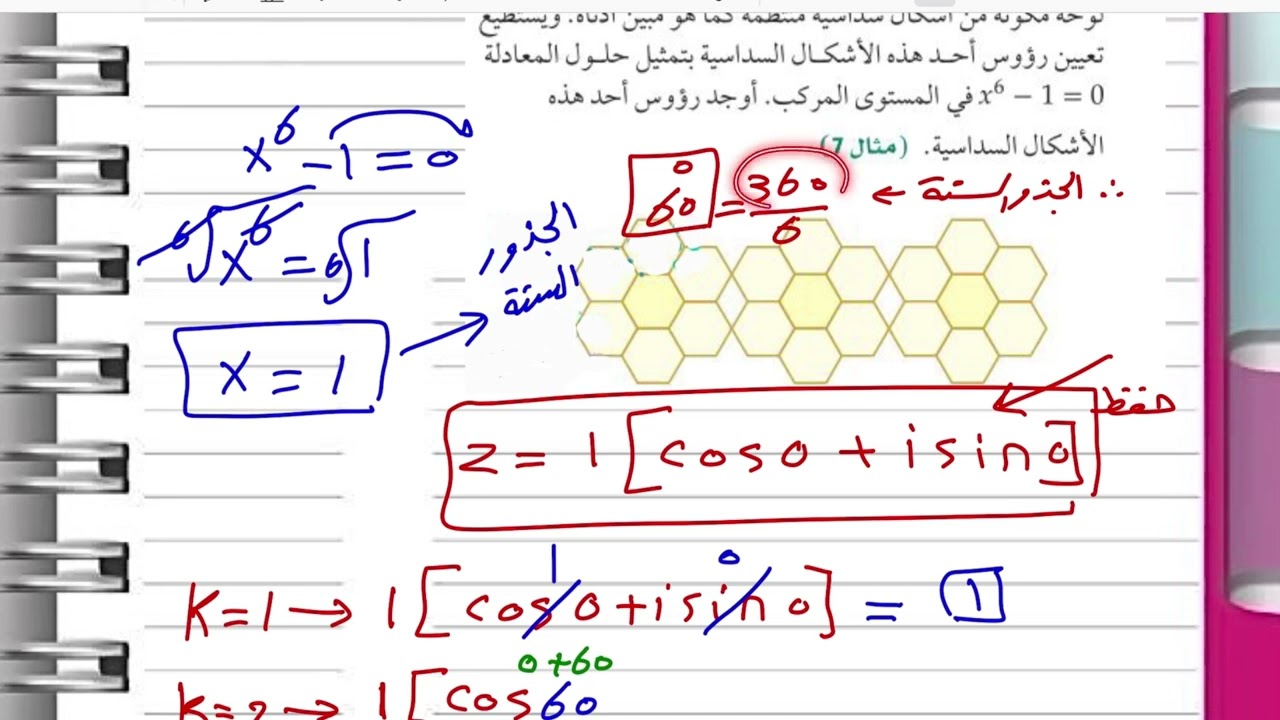 لوحة مكونة من أشكال سداسية منتظمة كما هو مبين أدناه. ويستطيع
تعيين رؤوس أحد هذه الأشكال السداسية بتمثيل حلول المعادلة
x⁶ − 1 = 0 في المستوى المركب. أوجد رؤوس أحد هذه
الأشكال السداسية. (مثال 7)
x⁶ − 1 = 0
⁶√x⁶ = ⁶√1
x = 1
الجذور
الستة
∴ الجذور الستة ← 360/6 = 60°
حفظ
z = 1 [cos0 + i sin0]
K=1 → 1 [cos0 + i sin0] = 1
1
0
0+60
K=2 → 1 [cos60